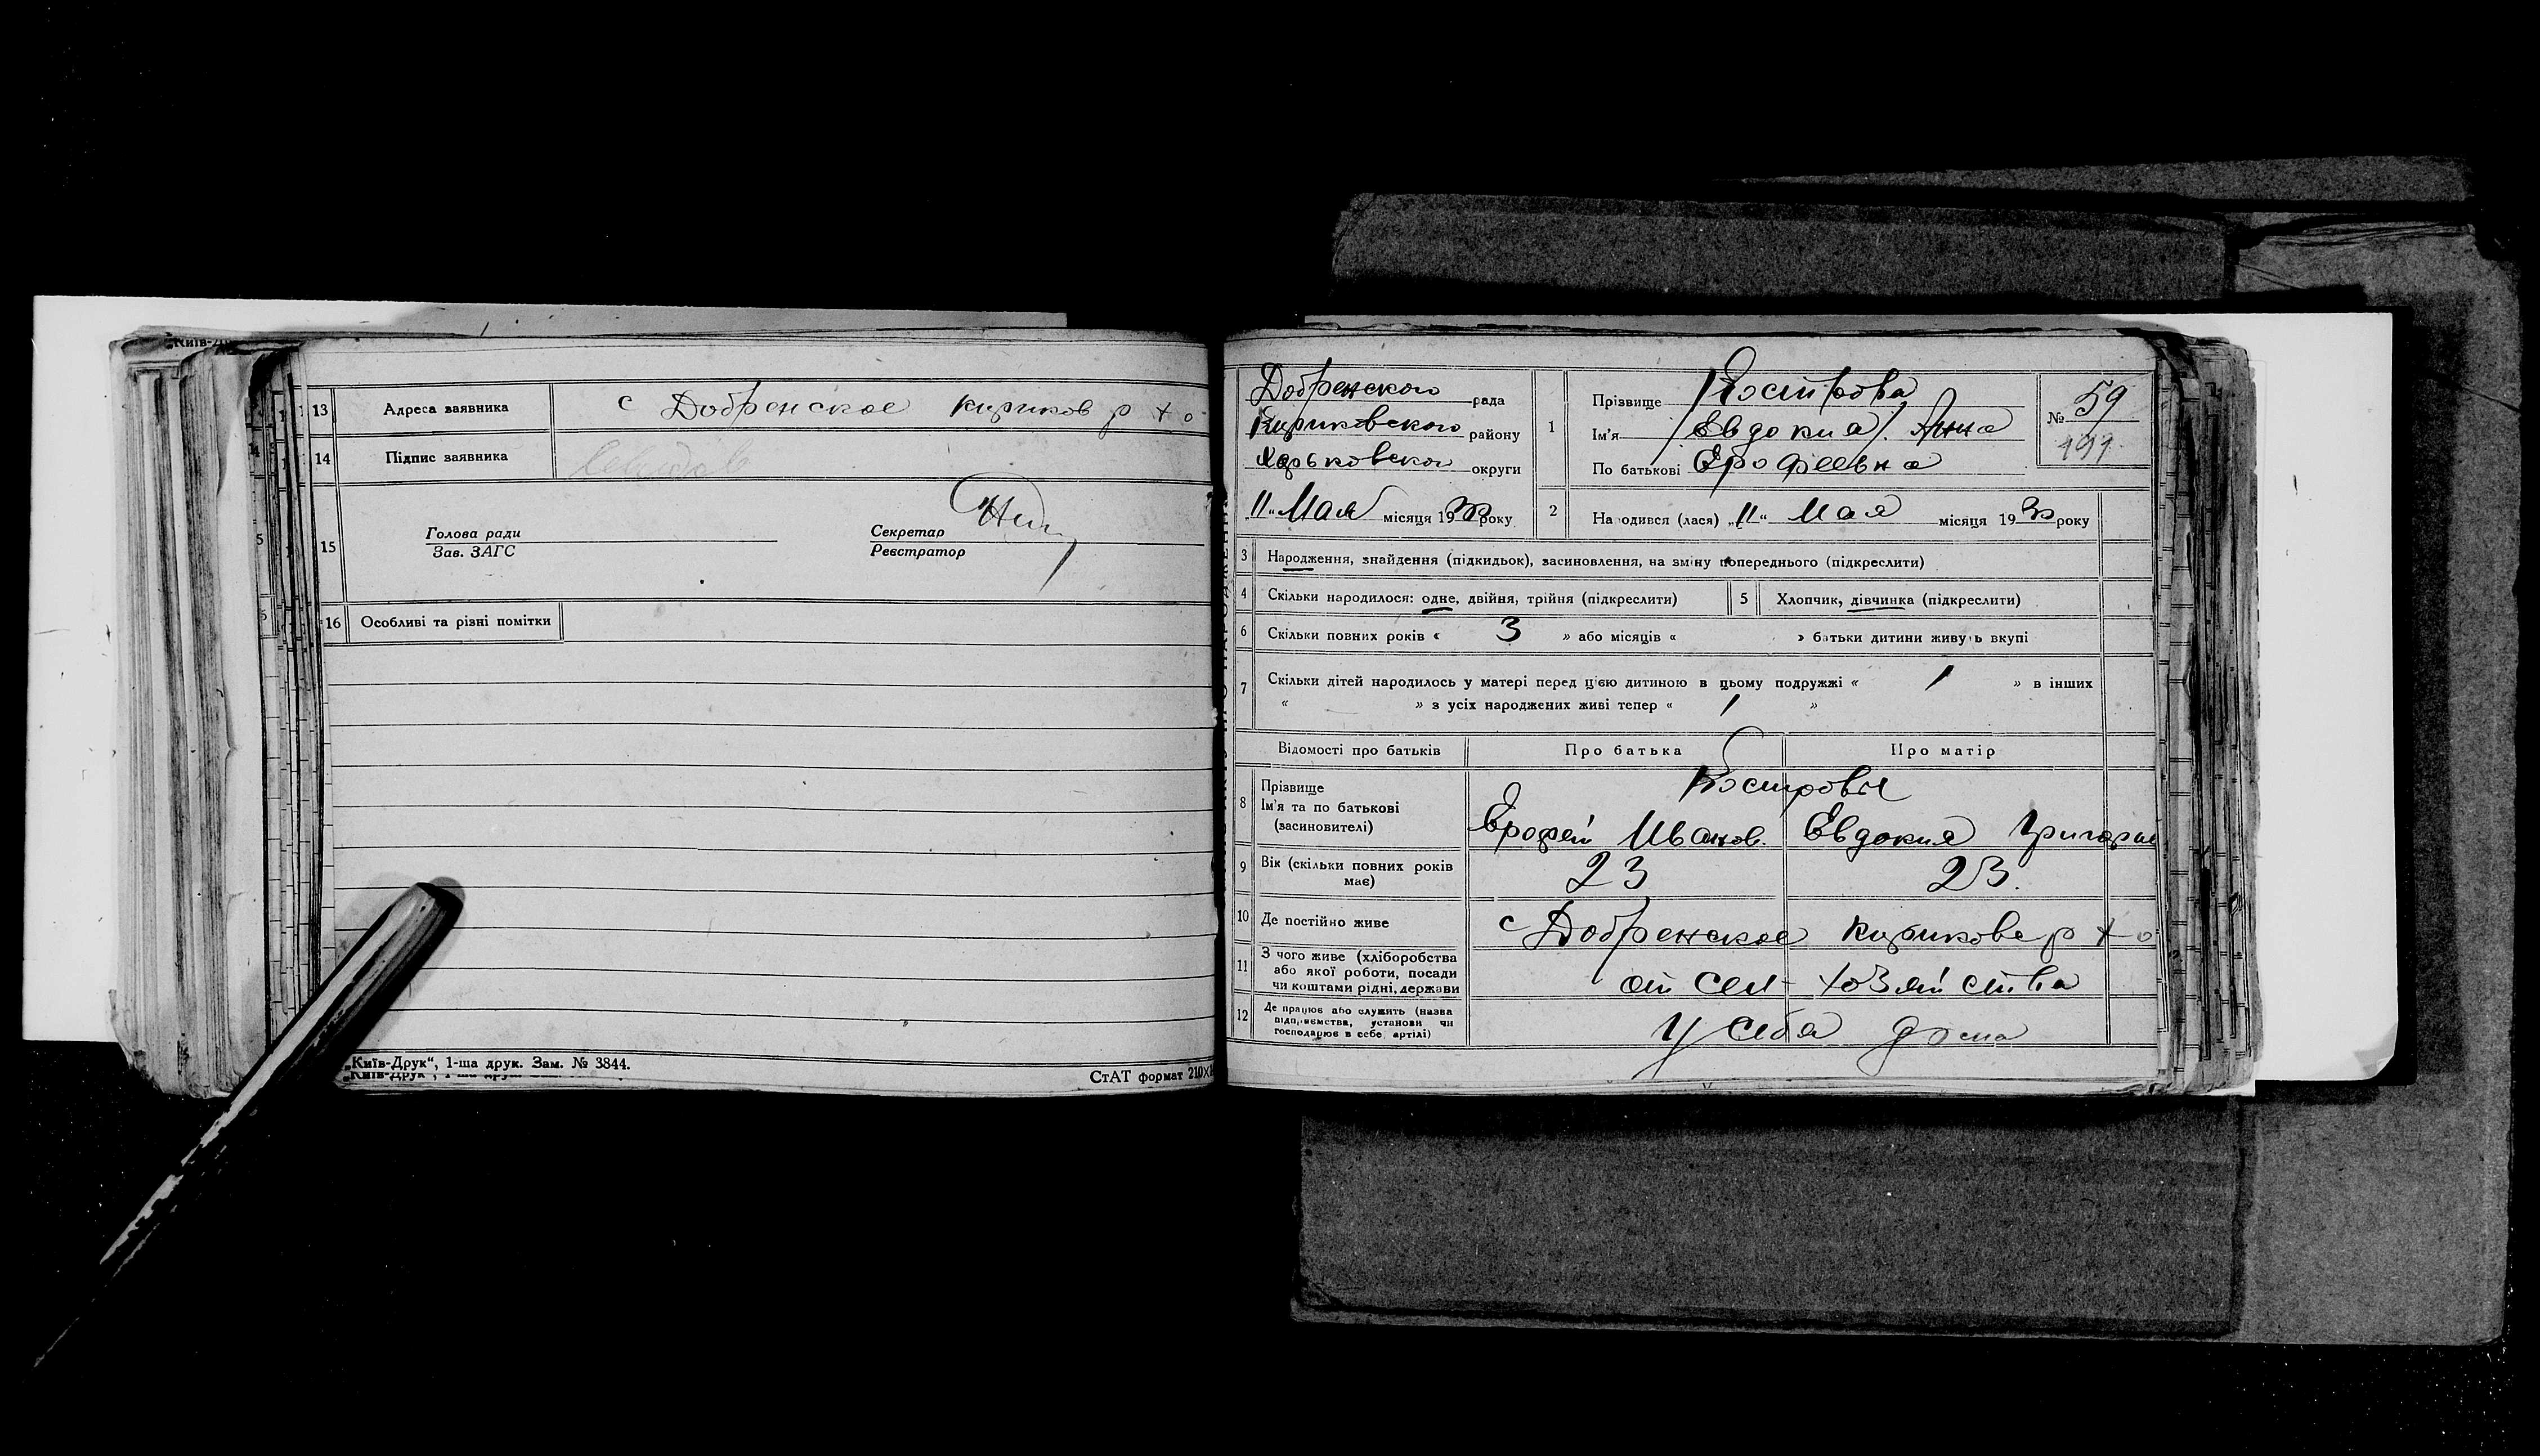 „Київ-Др
13 Адреса заявника с Добренское кириков р х о
14 Підпис заявника
15 Голова ради
Зав. ЗАГС
Секретар
Реєстратор
16 Особливі та різні помітки
„Київ-Друк“, 1-ша друк. Зам. № 3844.
СтАТ формат 210×
Добренского рада
Кириковского району
Харьковской округи
„11“ Мая місяця 1930 року
1 Прізвище Кострова
Ім'я /Евдокия/. Анна
По батькові Ерофеевна
№ 59
191
2 Народився (лася) „11“ Мая місяця 1930 року
3 Народження, знайдення (підкидьок), засиновлення, на зміну попереднього (підкреслити)
4 Скільки народилося: одне, двійня, трійня (підкреслити) 5 Хлопчик, дівчинка (підкреслити)
6 Скільки повних років « 3 » або місяців « » батьки дитини живуть вкупі
7 Скільки дітей народилось у матері перед цією дитиною в цьому подружжі « 1 » в інших
« » з усіх народжених живі тепер « 1 »
Відомості про батьків Про батька Про матір
8 Прізвище Костровы
Ім'я та по батькові
(засиновителі) Ерофей Иванов. Евдокия Григорье
9 Вік (скільки повних років має) 23 23.
10 Де постійно живе с Добренское кирикове р х о
11 З чого живе (хліборобства
або якої роботи, посади
чи коштами рідні, держави от сел- хозяйства
12 Де працює або служить (назва
підприємства, установи чи
господарює в себе, артілі) у себя дома